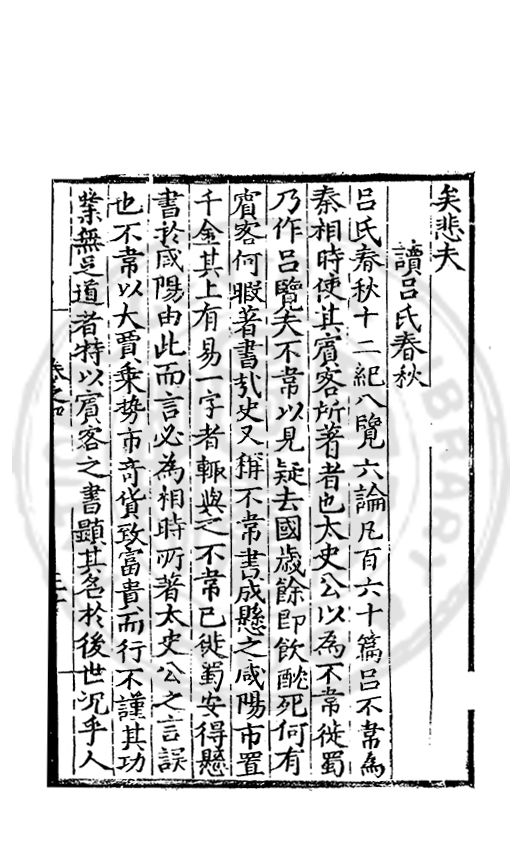 矣悲夫
讀吕氏春秋
吕氏春秋十二紀八覽六論凡百六十篇吕不常為
秦相時使其賓客所著者也太史公以為不常徙蜀
乃作吕覽夫不常以見疑去國歲餘即飲酖死何有
賓客何暇著書㢤史又稱不常書成懸之咸陽市置
千金其上有易一字者輒與之不常已徙蜀安得懸
書於咸陽由此而言必為相時所著太史公之言誤
也不常以大賈乗勢市奇貨致富貴而行不謹其功
業無足道者特以賓客之書顯其名於後世况乎人
卷之四